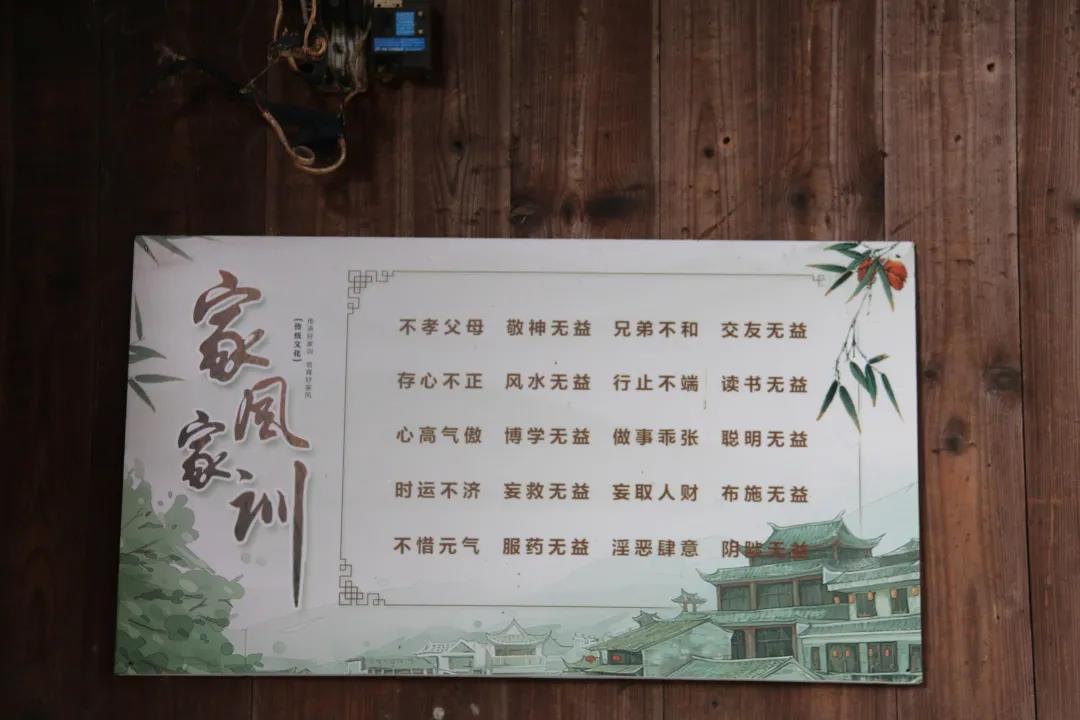 家风
家训
传承好家训 培育好家风
【传统文化】
不孝父母 敬神无益 兄弟不和 交友无益
存心不正 风水无益 行止不端 读书无益
心高气傲 博学无益 做事乖张 聪明无益
时运不济 妄救无益 妄取人财 布施无益
不惜元气 服药无益 淫恶肆意 阴陟无益